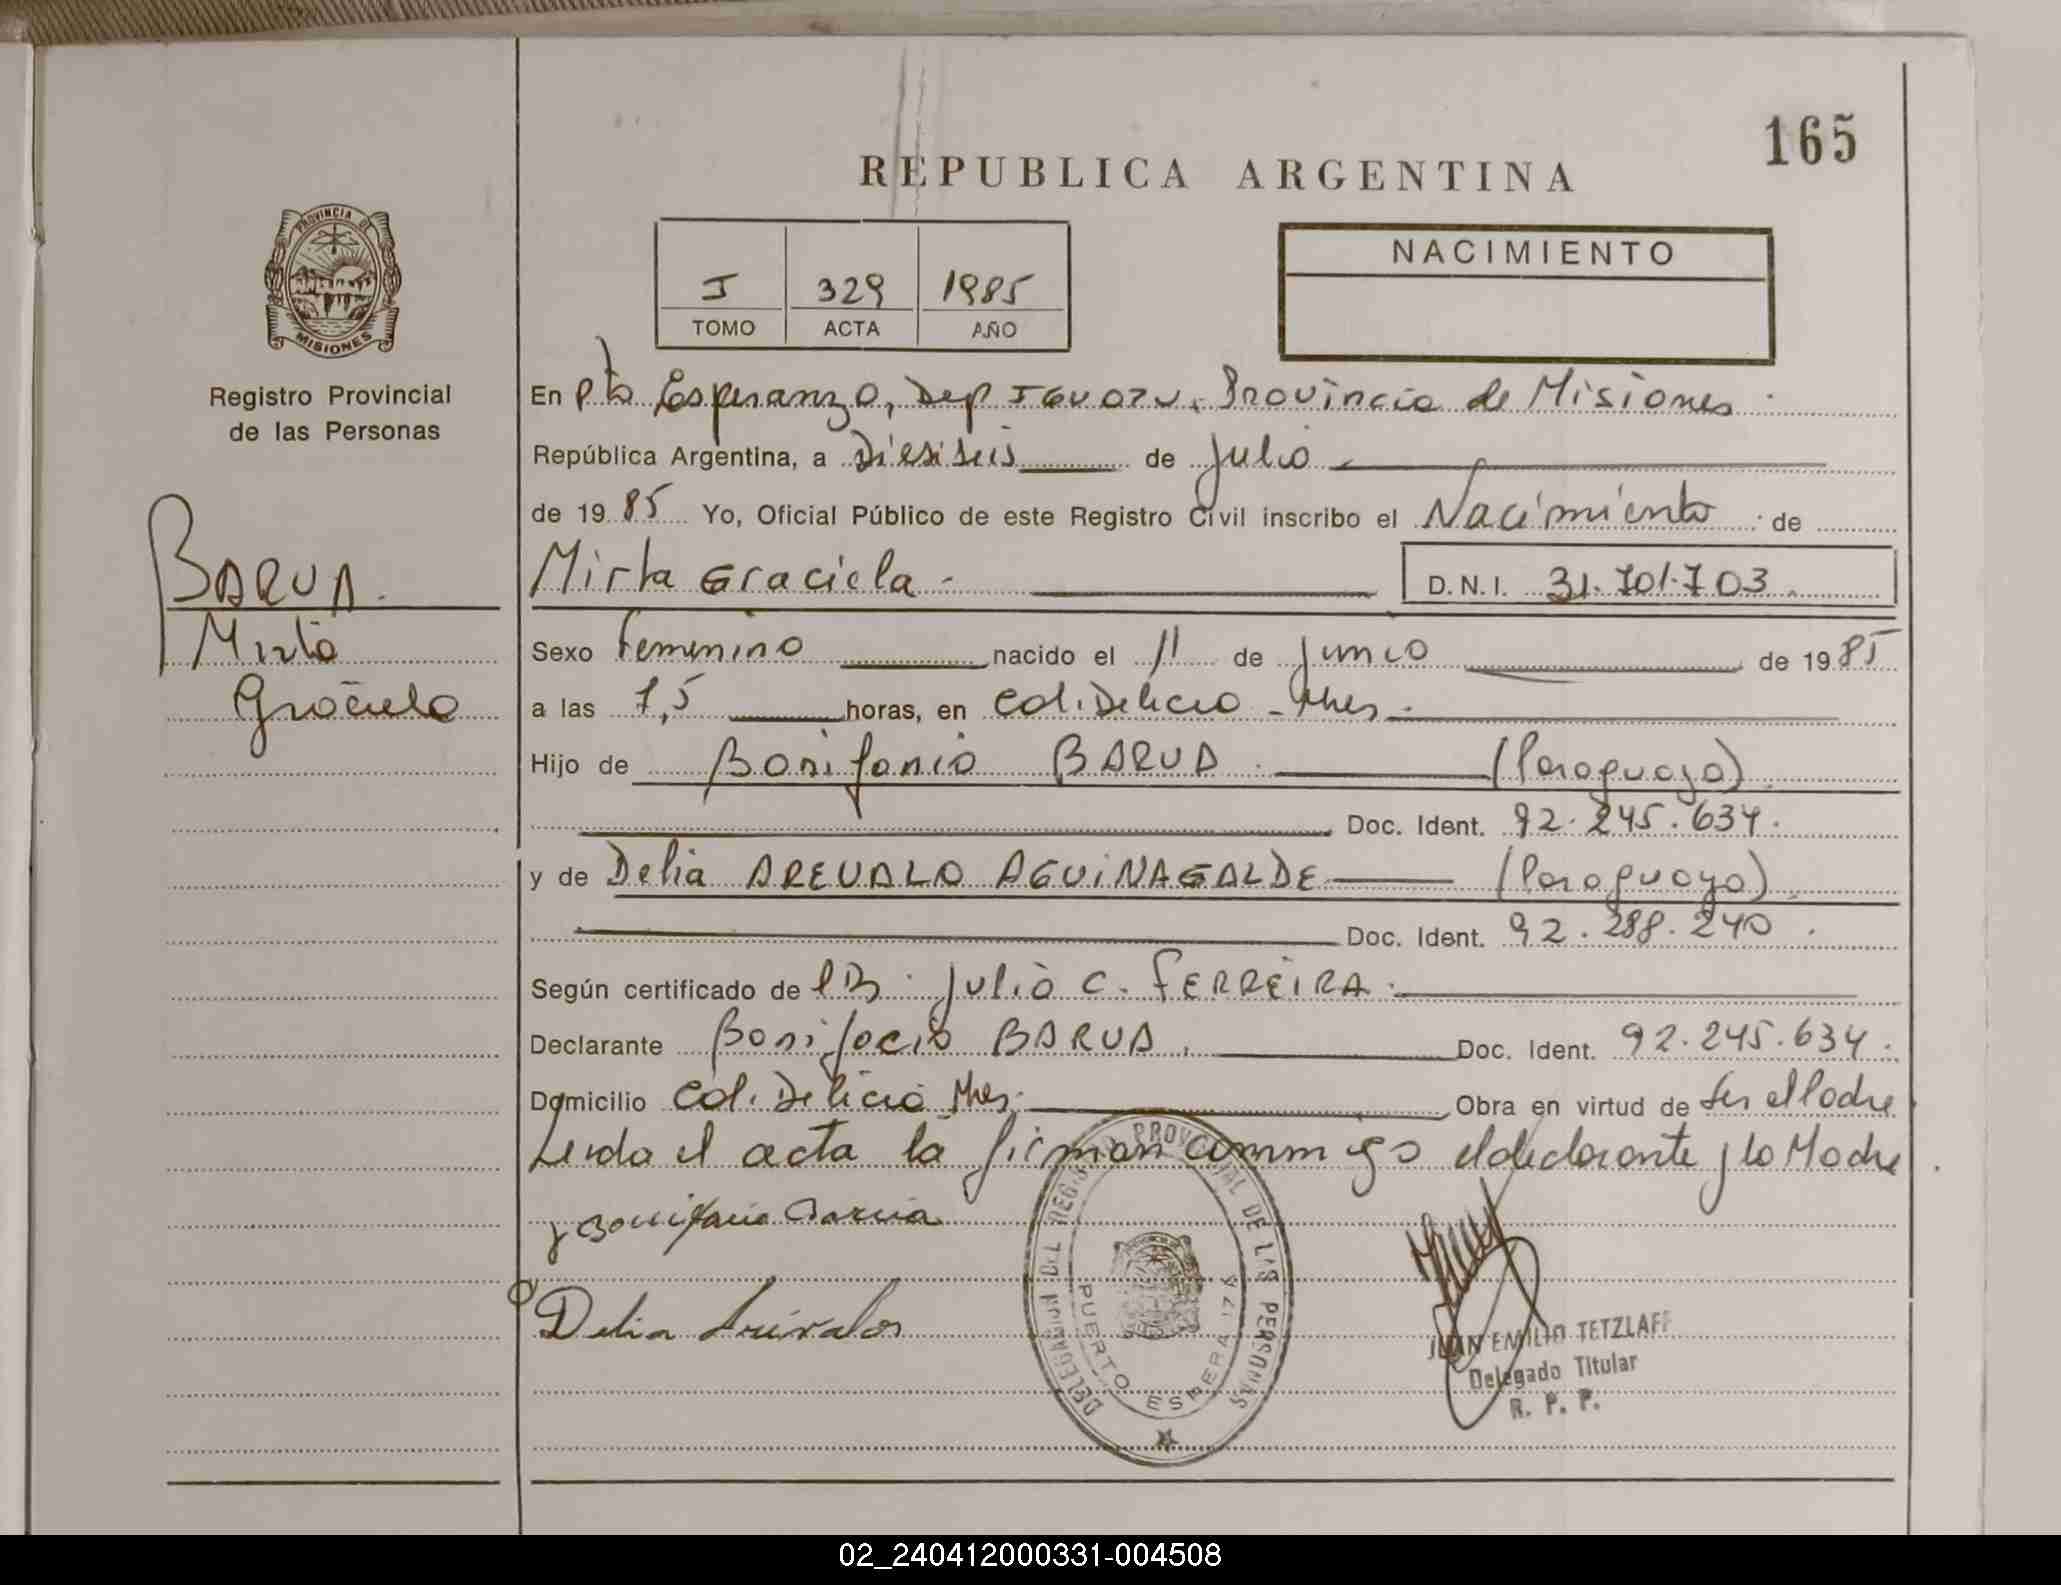 165
REPUBLICA ARGENTINA
PROVINCIA DE
MISIONES
Registro Provincial
de las Personas
I 329 1985
TOMO ACTA AÑO
NACIMIENTO
BARUA.
Mirta
Graciela
En Pto Esperanza, Dep IGUAZU. Provincia de Misiones
República Argentina, a Diesiseis de Julio
de 1985 Yo, Oficial Público de este Registro Civil inscribo el Nacimiento de
Mirta Graciela - D.N.I. 31.701.703
Sexo Femenino nacido el 11 de Junio de 1985
a las 7,5 horas, en Col. Delicia - Mnes.
Hijo de Bonifacio BARUA (Paraguaya)
Doc. Ident. 92.245.634.
y de Delia AREVALO AGUINAGALDE (Paraguaya)
Doc. Ident. 92.288.240.
Según certificado de Julio C. FERREIRA.
Declarante Bonifacio BARUA. Doc. Ident. 92.245.634.
Domicilio Col. Delicia Mnes. Obra en virtud de Ser el Padre
Leida el acta la firman conmigo el declarante y la Madre
Bonifacio Barua
Delia Arevalos
DELEGACION DEL REGISTRO PROVINCIAL DE LAS PERSONAS
PUERTO ESPERANZA
JUAN EMILIO TETZLAFF
Delegado Titular
R. P. P.
02_240412000331-004508